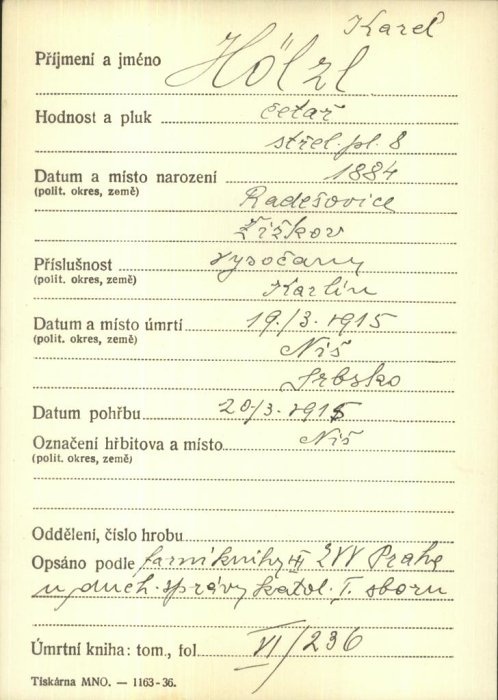 Karel
Příjmení a jméno Hölzl
Hodnost a pluk četař
střel. pl. 8
Datum a místo narození 1884
(polit. okres, země) Radešovice
Žižkov
Příslušnost Vysočany
(polit. okres, země) Karlín
Datum a místo úmrtí 19./3. 1915
(polit. okres, země) Niš
Srbsko
Datum pohřbu 20/3. 1915
Označení hřbitova a místo Niš
(polit. okres, země)
Oddělení, číslo hrobu
Opsáno podle farní knihy ZVV Praha
u duch. správy katol. I. sboru
Úmrtní kniha: tom., fol. VI/236
Tiskárna MNO. — 1163-36.